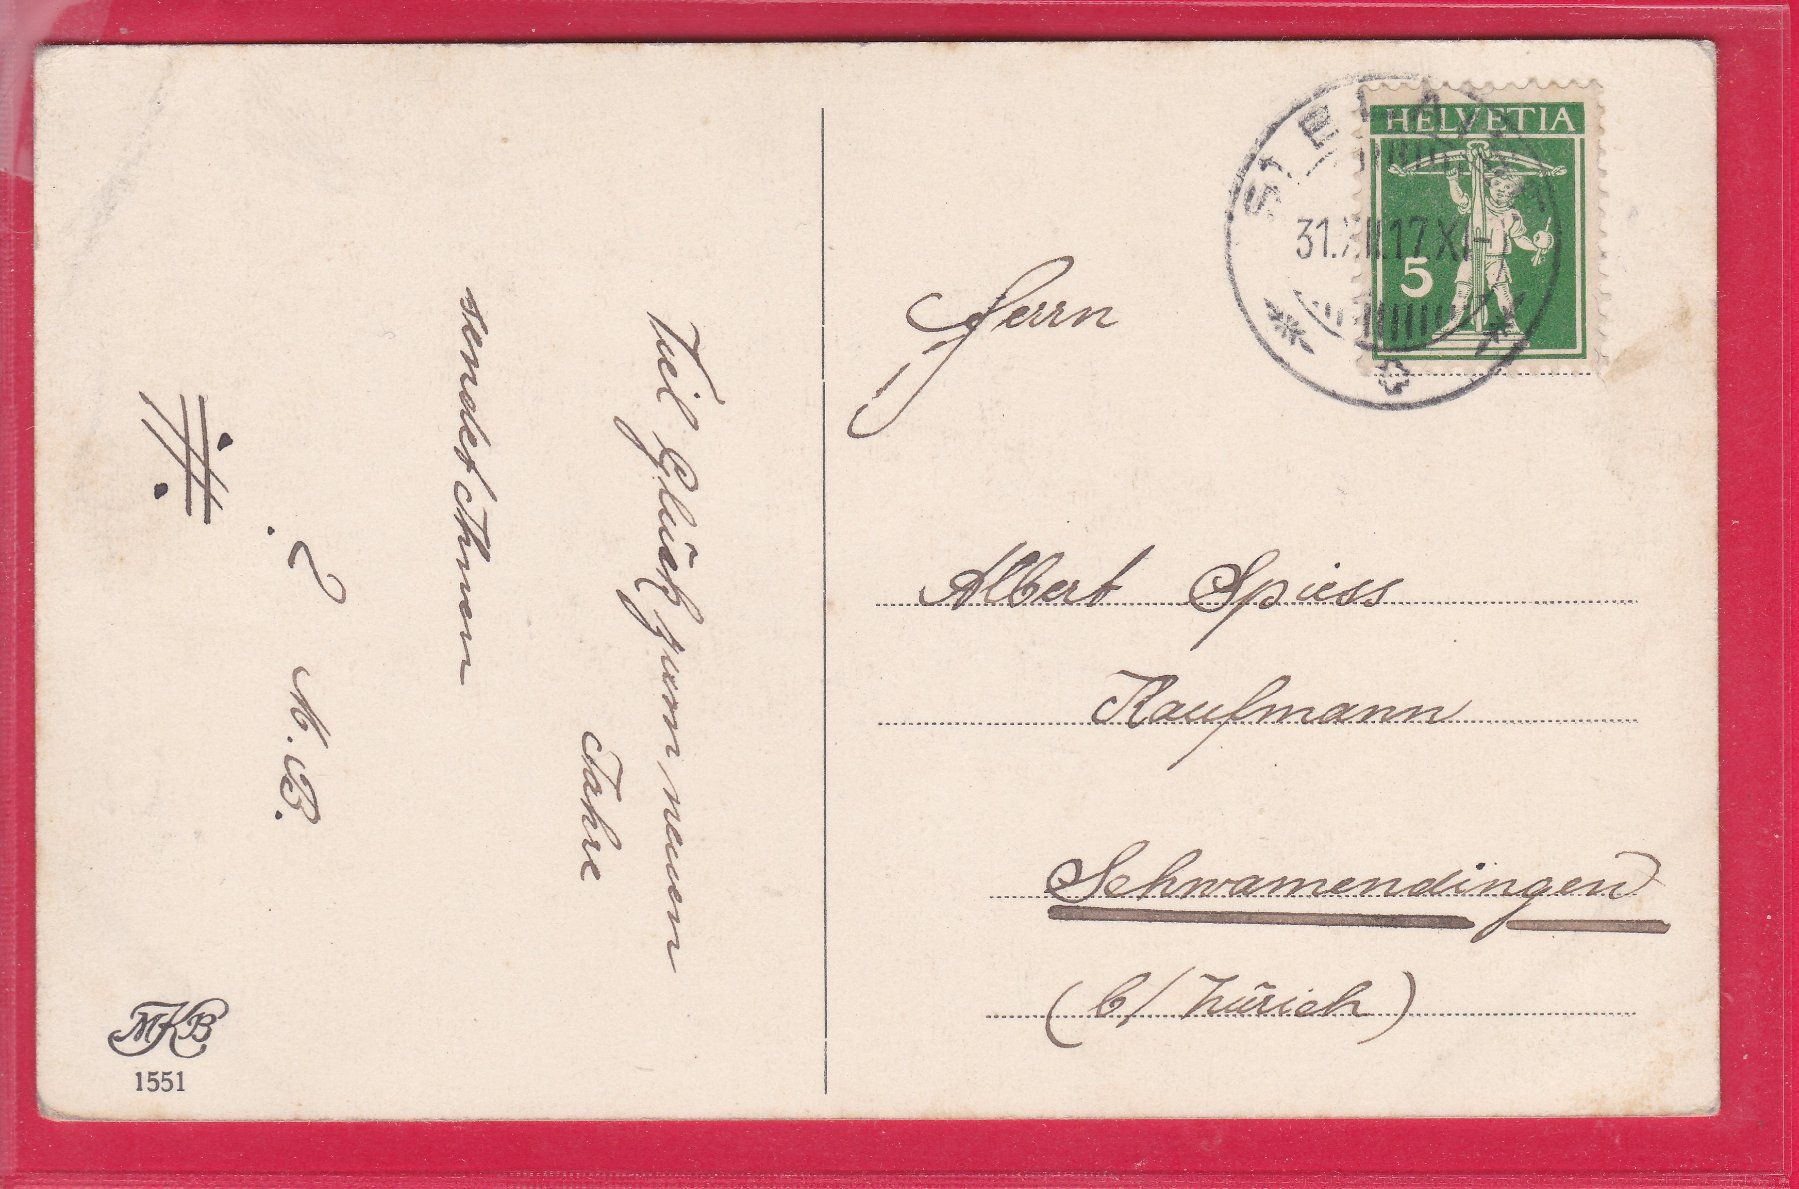 Viel Glück zum neuen
Jahre
sendet Ihnen
? M. B.
MKB
1551
HELVETIA
5
31.XII.17 XI-
Herrn
Albert Spiess
Kaufmann
Schwamendingen
(b/ Zürich)